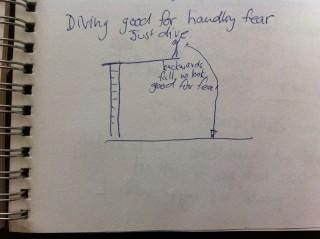 Diving good for handling fear
Just dive
backwards
fall, no look
good for fear